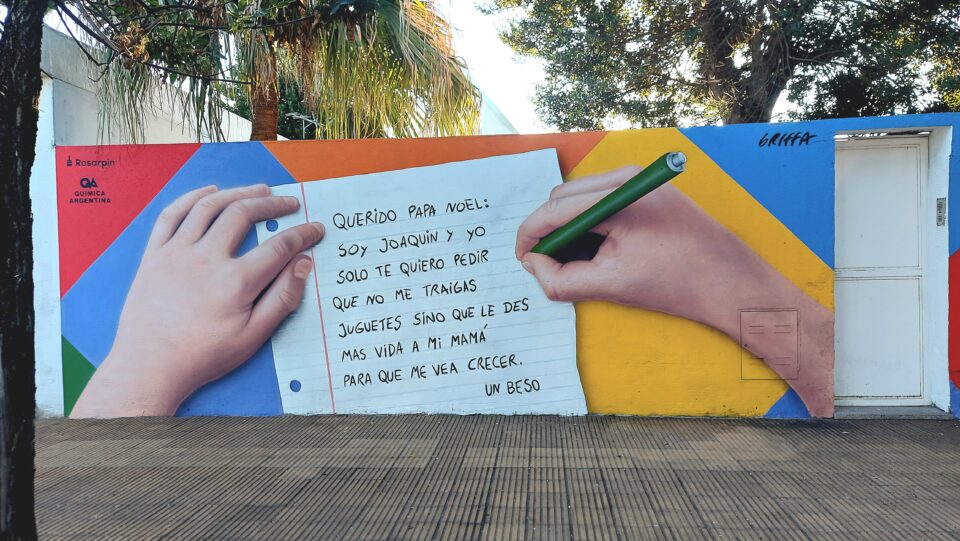 Rosarpin
QA
QUIMICA
ARGENTINA
GRIFFA
QUERIDO PAPA NOEL:
SOY JOAQUIN Y YO
SOLO TE QUIERO PEDIR
QUE NO ME TRAIGAS
JUGUETES SINO QUE LE DES
MAS VIDA A MI MAMÁ
PARA QUE ME VEA CRECER.
UN BESO